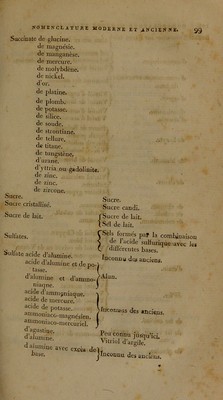 NOMENCLATURE MODERNE ET ANCIENNE. 99
Succinate de glucine.
de magnésie.
de manganèse.
de mercure.
de molybdène.
de nickel.
d'or.
de platine.
de plomb.
de potasse.
de silice.
de soude.
de strontiane.
de tellure.
de titane.
de tungstène.
d'urane.
d'yttria ou gadolinite.
de zinc.
de zinc.
de zircone.
Sucre. Sucre.
Sucre cristallisé. Sucre candi.
Sucre de lait. Sucre de lait.
Sel de lait.
Sulfates. Sels formés par la combinaison
de l'acide sulfurique avec les
différentes bases.
Sulfate acide d'alumine. Inconnu des anciens.
acide d'alumine et de potasse.
d'alumine et d'ammoniaque. Alun.
acide d'ammoniaque.
acide de mercure.
acide de potasse. Inconnus des anciens.
ammoniaco-magnésien.
ammoniaco-mercuriel.
d'agustine. Peu connu jusqu'ici.
d'alumine. Vitriol d'argile.
d'alumine avec excès de
base. Inconnu des anciens.